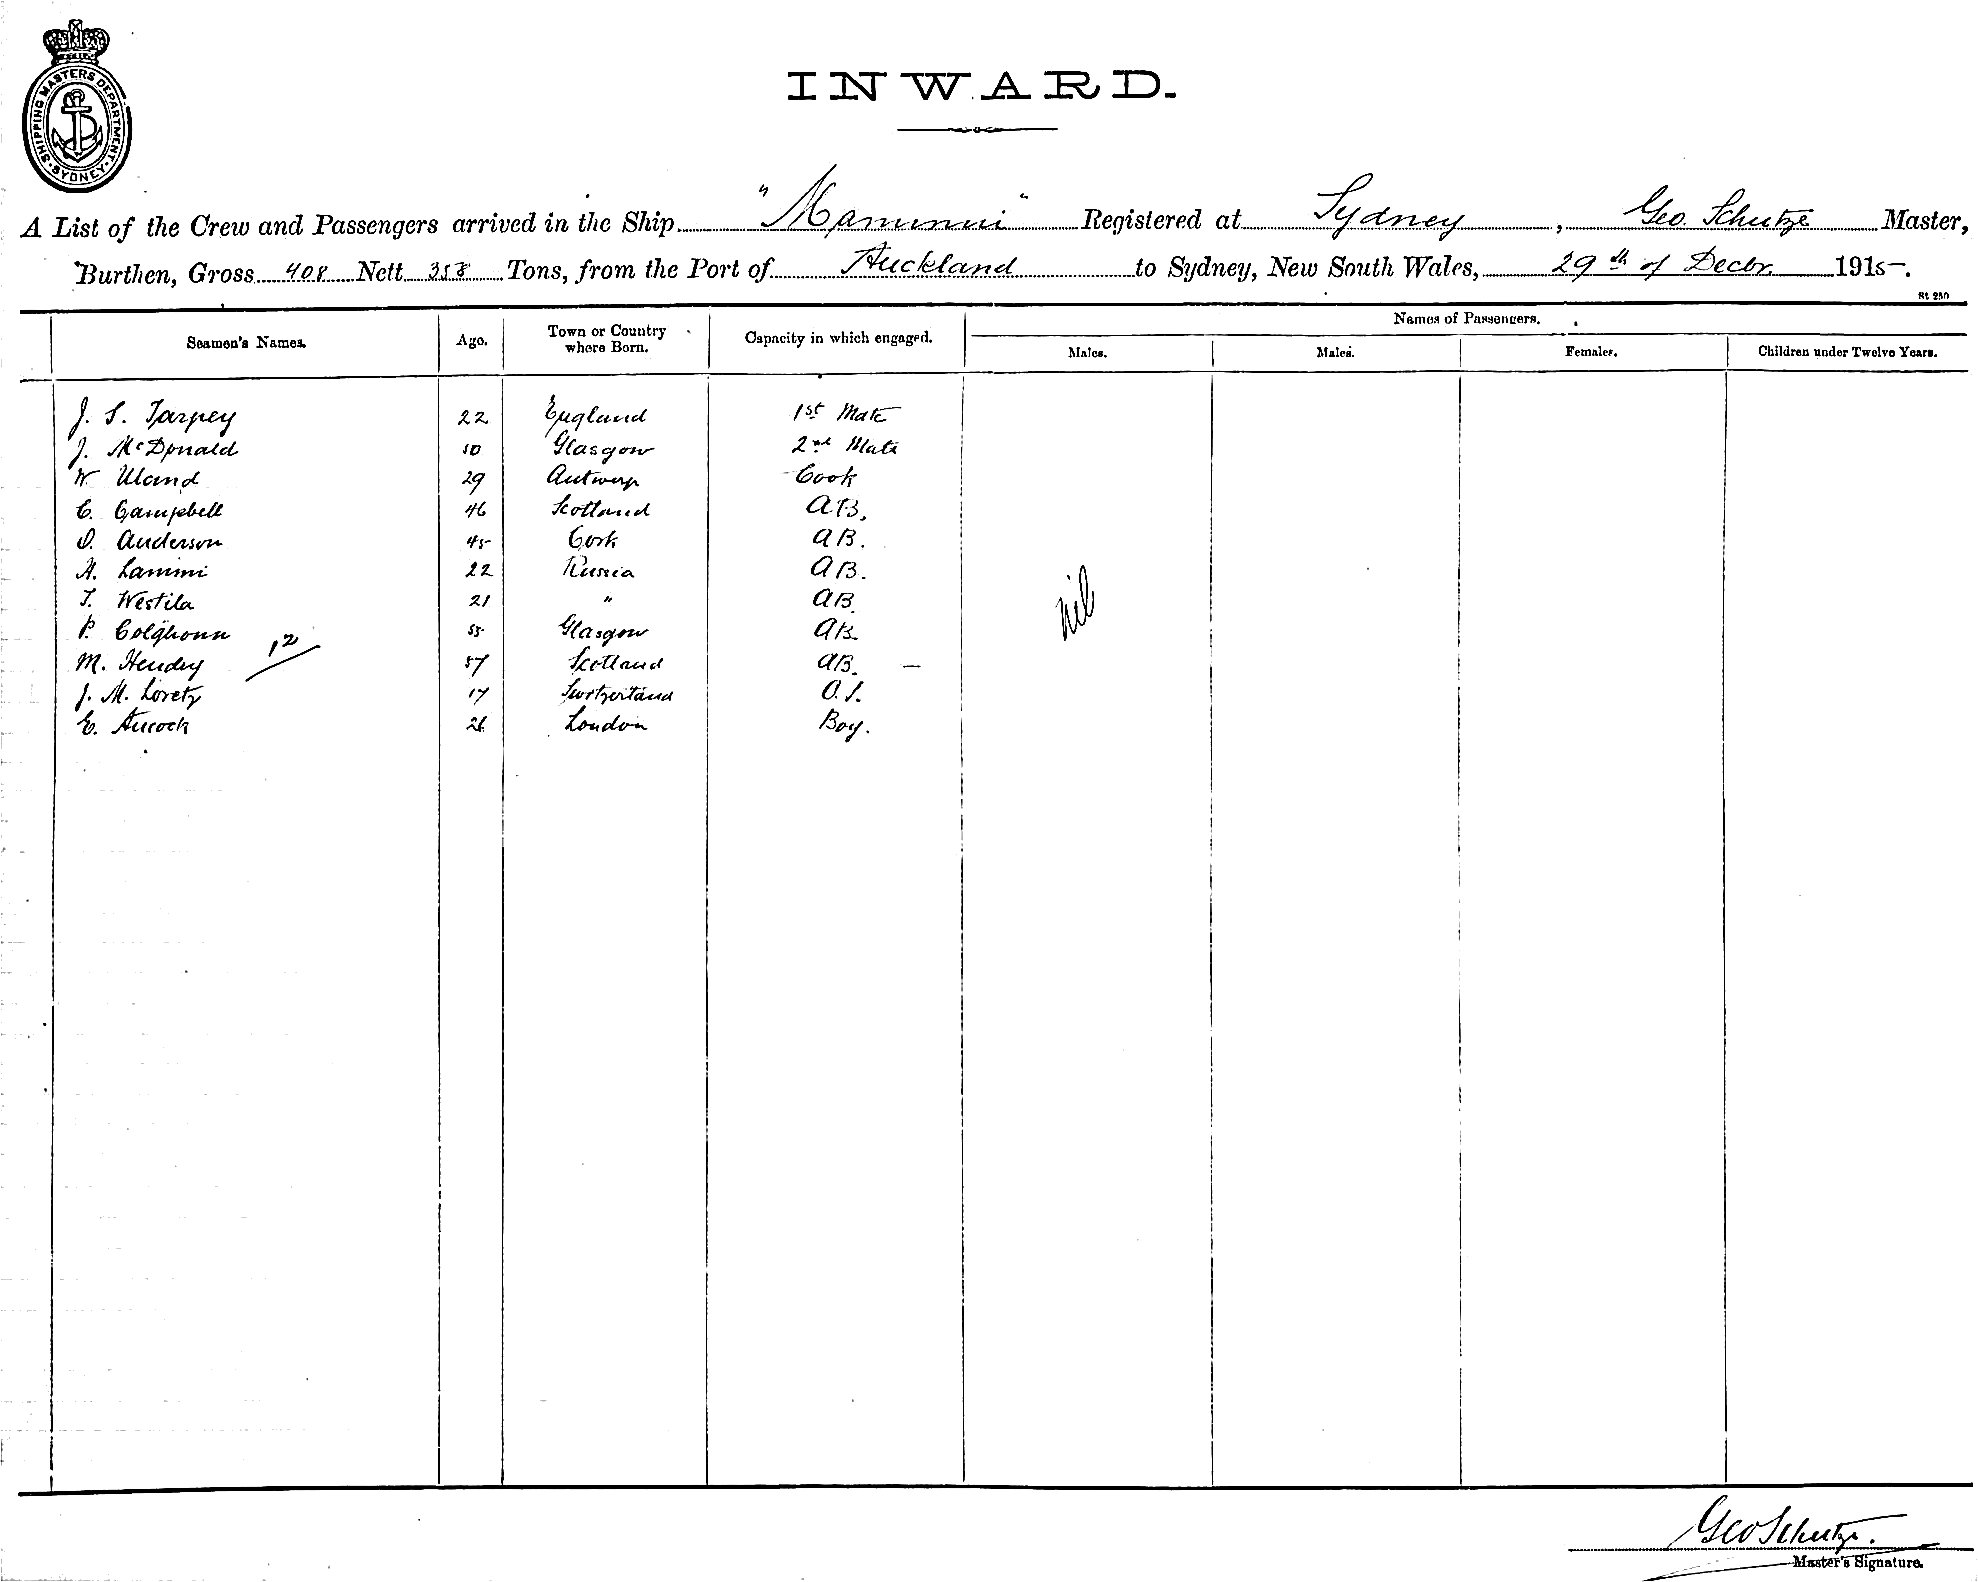 SHIPPING MASTERS DEPARTMENT · SYDNEY ·
INWARD.
A List of the Crew and Passengers arrived in the Ship "Manunui" Registered at Sydney, Geo. Schutze Master,
Burthen, Gross 408 Nett 358 Tons, from the Port of Auckland to Sydney, New South Wales, 29th of Decbr. 1915.
St 250
Seamen's Names. Age. Town or Country where Born. Capacity in which engaged. Names of Passengers.
Males. Males. Females. Children under Twelve Years.
J. S. Tarpey 22 England 1st Mate
J. McDonald 50 Glasgow 2nd Mate
W Uland 29 Antwerp Cook
C. Campbell 46 Scotland AB.
O. Anderson 45 Cork AB.
H. Lammi 22 Russia AB.
T. Westila 21 " AB.
P. Colqhoun 55 Glasgow AB.
nil
12
M. Hendry 57 Scotland AB. —
J. M. Loretz 17 Switzerland O.S.
E. Aucock 26 London Boy.
Geo Schutze.
Master's Signature.